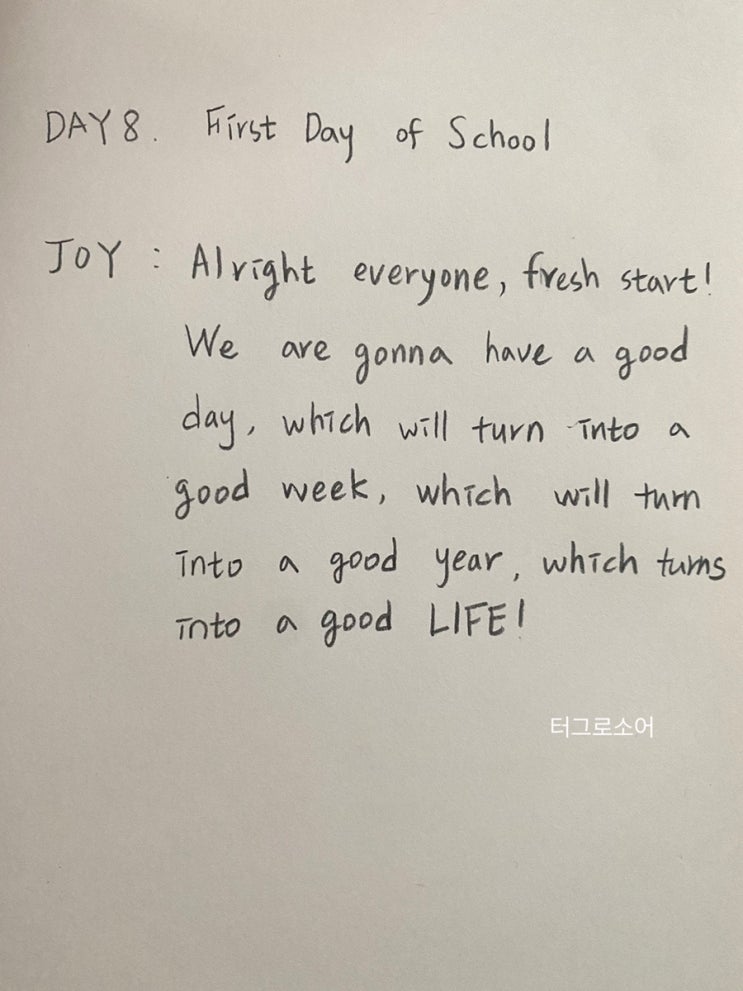 DAY 8. First Day of School
JOY : Alright everyone, fresh start!
We are gonna have a good
day, which will turn into a
good week, which will turn
into a good year, which turns
into a good LIFE!
터그로소어